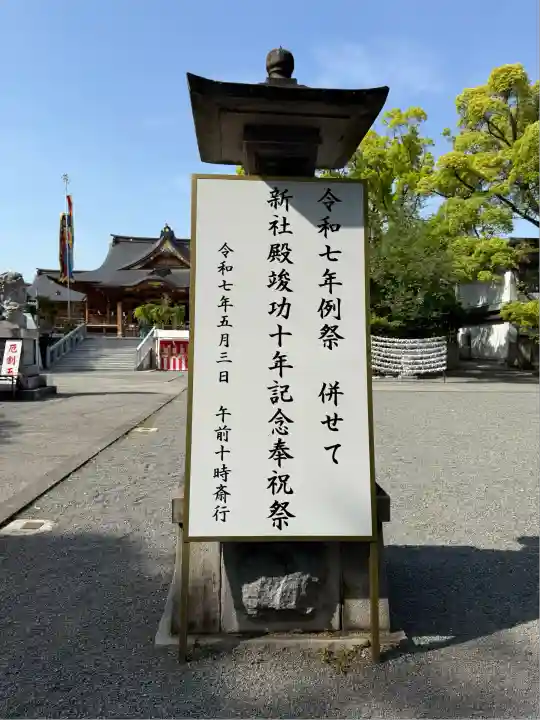 令和七年例祭　併せて
新社殿竣功十年記念奉祝祭
令和七年五月三日　午前十時斎行
厄割玉